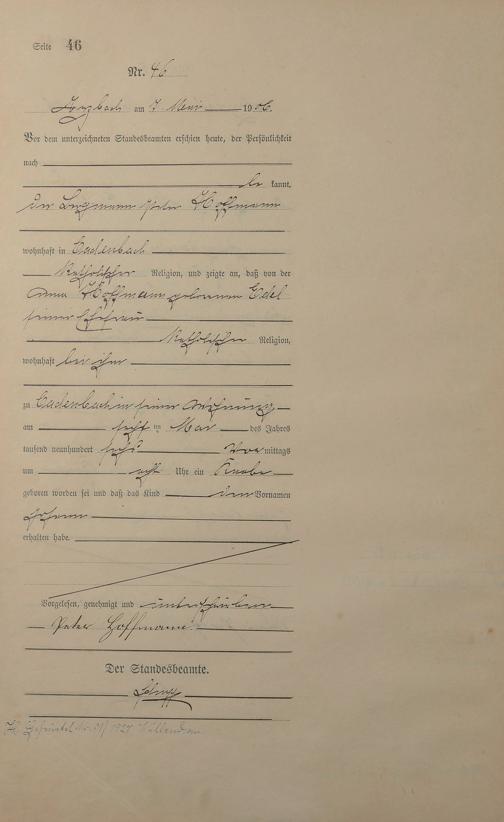 Seite 46
Nr. 46
am 7 Mai 1906.
Vor dem unterzeichneten Standesbeamten erschien heute, der Persönlichkeit
nach
be kannt,
der Bergmann Peter Hoffmann
wohnhaft in Cadenbach
katholischer Religion, und zeigte an, daß von der
Anna Hoffmann geborenen Edel
seiner Ehefrau
katholischer Religion,
wohnhaft bei ihm
zu Cadenbach in seiner Wohnung
am im Mai des Jahres
tausend neunhundert sechs Vor mittags
um acht Uhr ein Knabe
geboren worden sei und daß das Kind den Vornamen
Johann
erhalten habe.
Vorgelesen, genehmigt und unterschrieben
Peter Hoffmann
Der Standesbeamte.
1927